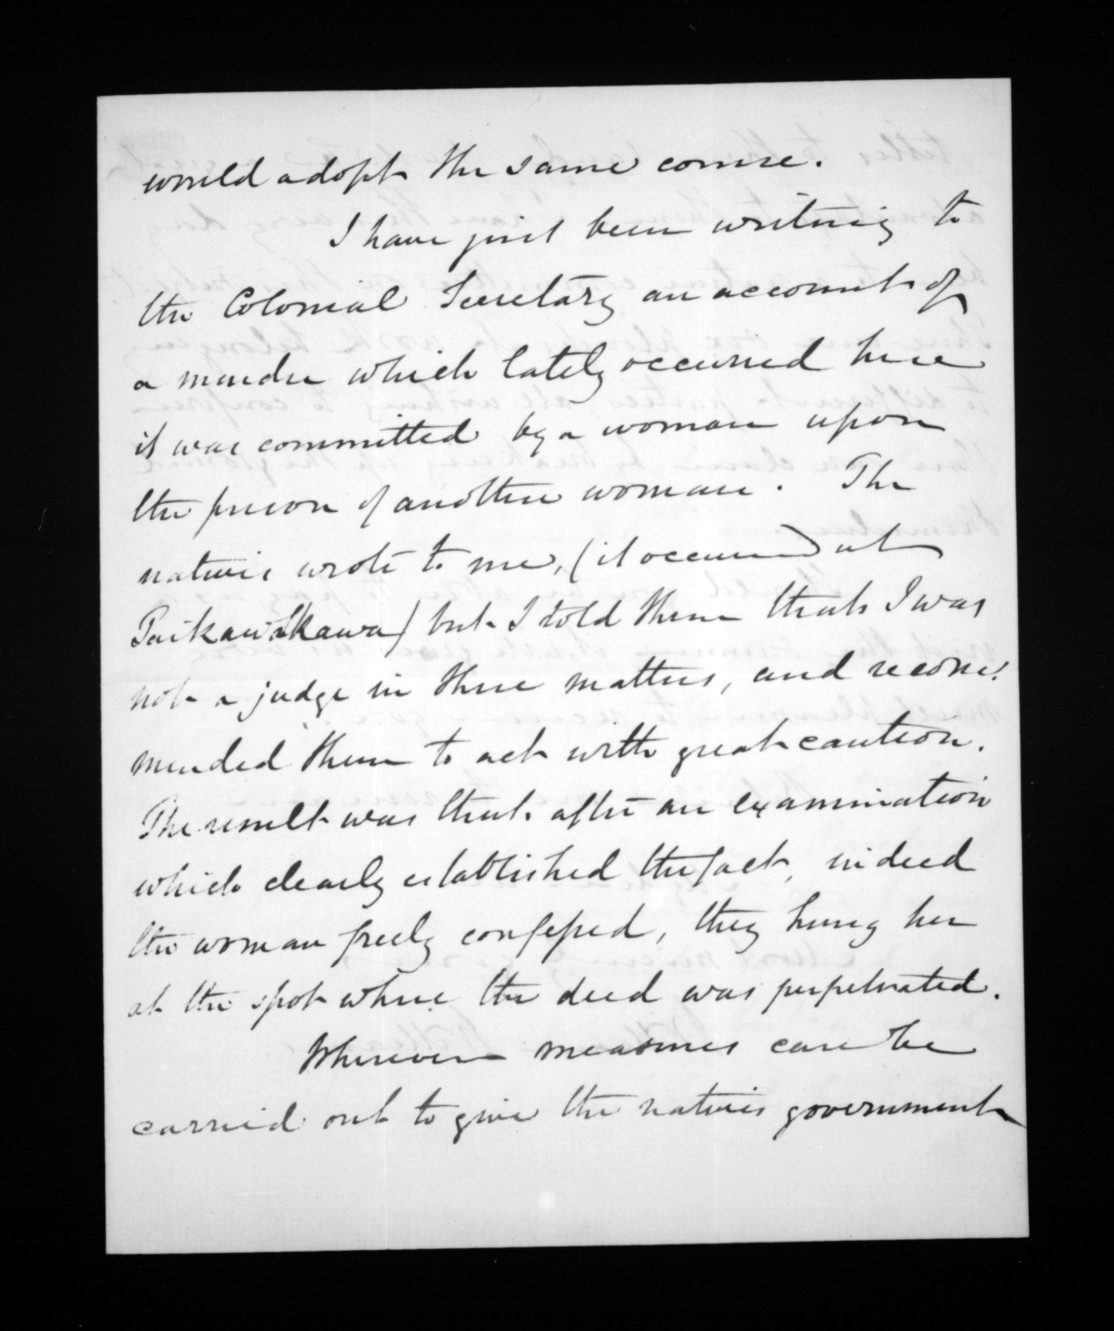 would adopt the same course.
I have just been writing to
the Colonial Secretary an account of
a murder which lately occurred here
it was committed by a woman upon
the person of another woman. The
natives wrote to me, (it occurred at
Paikawakawa) but I told them that I was
not a judge in these matters, and recom
mended them to act with great caution.
The result was that after an examination
which clearly established the fact, indeed
the woman freely confessed, they hung her
at the spot where the deed was perpetrated.
Wherever measures can be
carried out to give the natives government